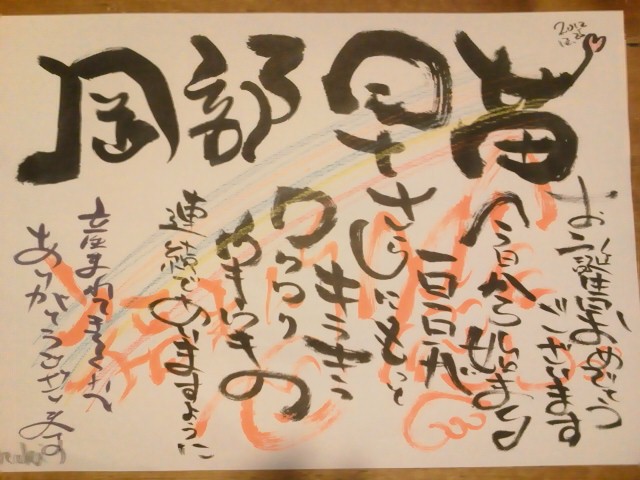 2012
岡部早苗
お誕生日おめでとう
ございます
今日から始まる
一日一日が
さらにもっと
キラキラ
ワクワク
ウキウキの
連続でありますように
産まれてきて
ありがとうございます